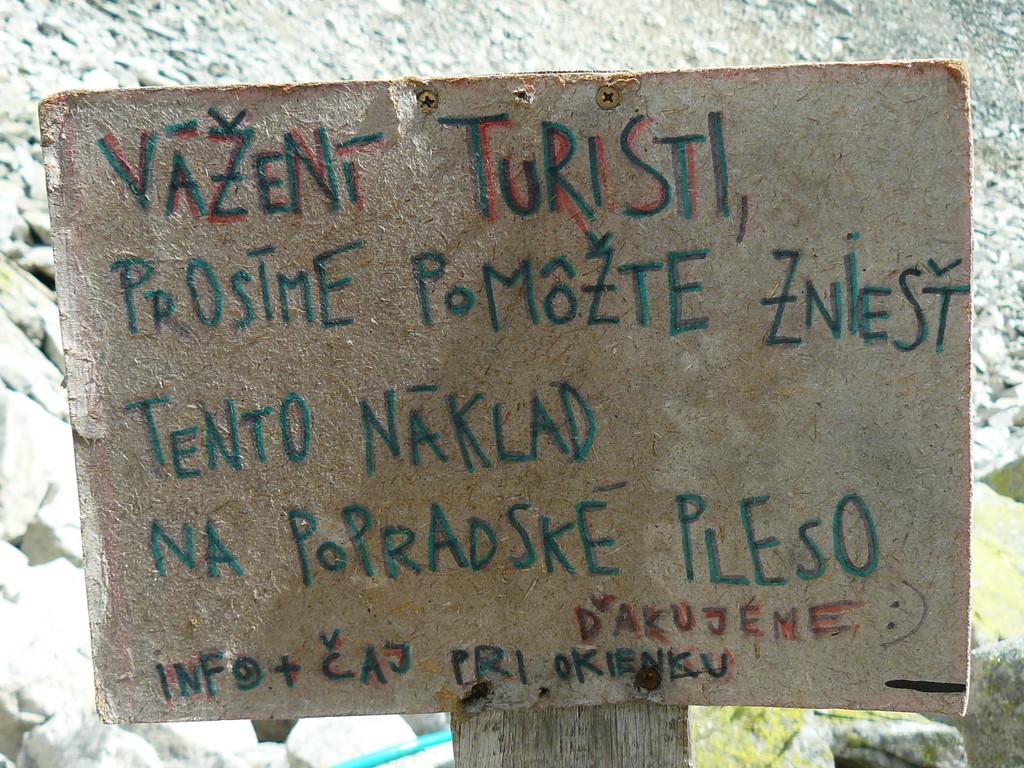 VÁŽENÍ TURISTI,
PROSÍME POMÔŽTE ZNIESŤ
TENTO NÁKLAD
NA POPRADSKÉ PLESO
ĎAKUJEME :)
INFO + ČAJ PRI OKIENKU